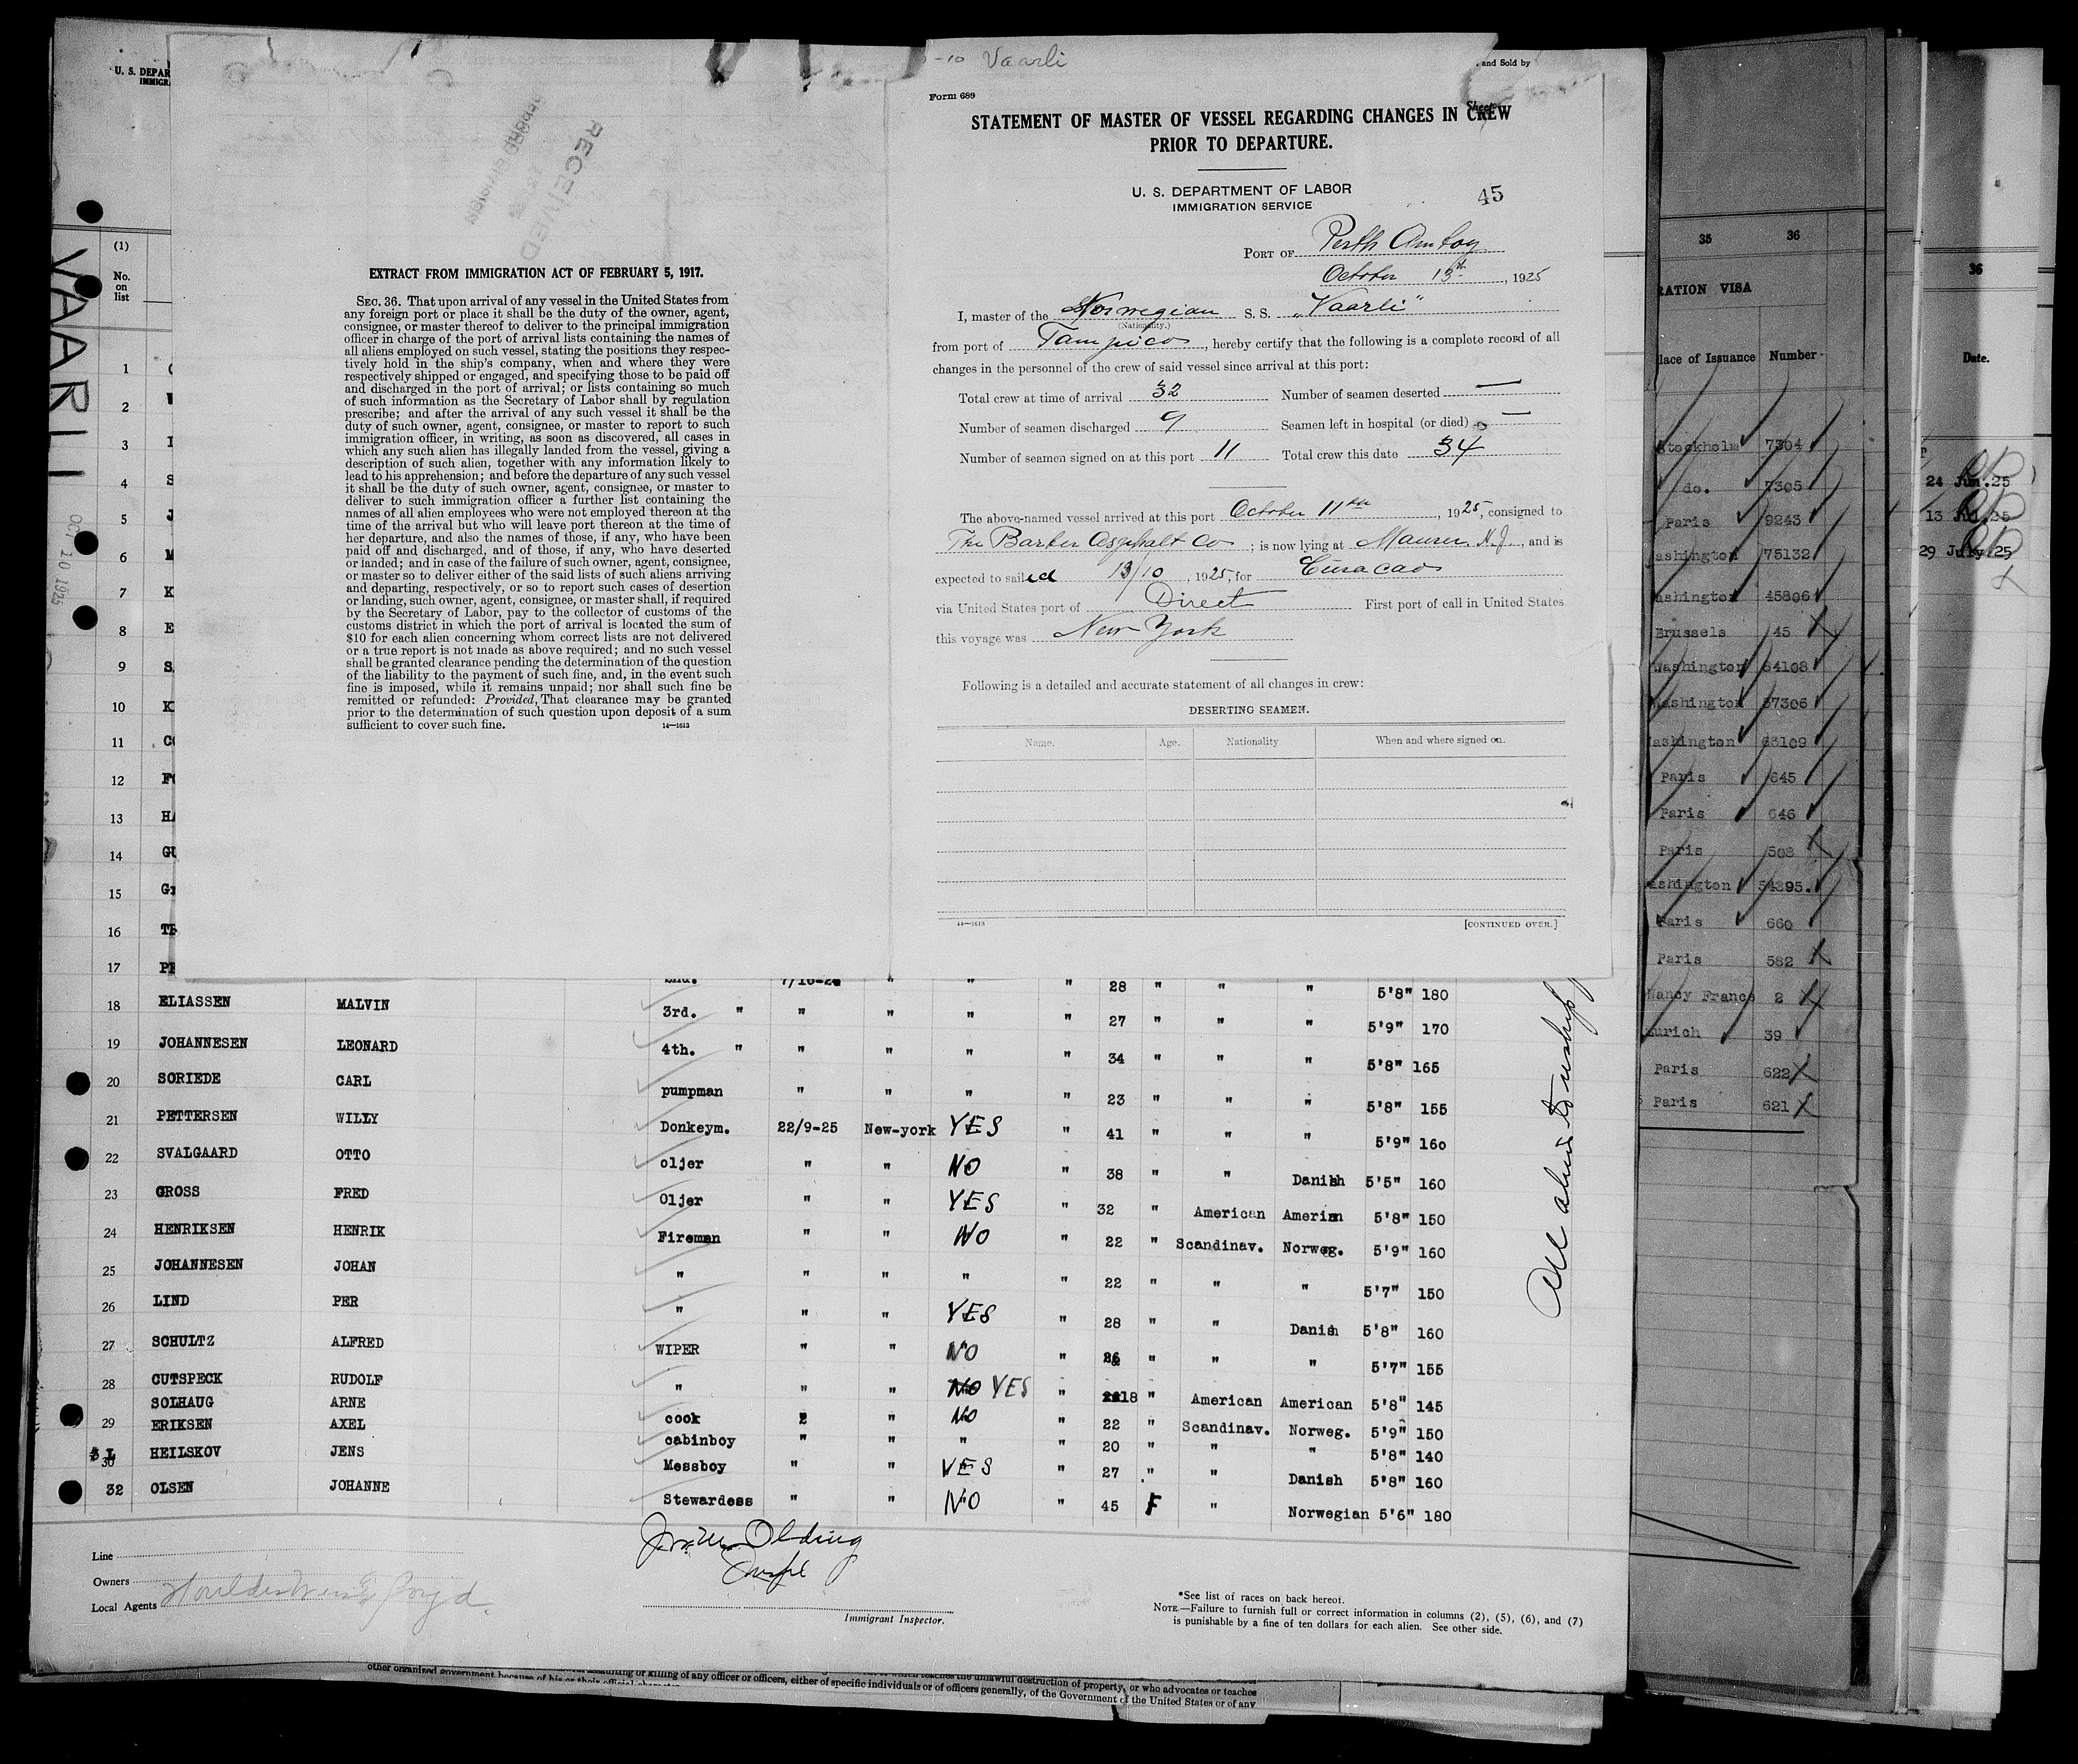 U. S. DEPAR
IMMIGRA
VAARLI
OCT 10 1925
(1)
No.
on
list
1
2
3
4
5
6
7
8
9
10
11
12
13
14
15
16
17
RECEIVED
EXTRACT FROM IMMIGRATION ACT OF FEBRUARY 5, 1917.
SEC. 36. That upon arrival of any vessel in the United States from
any foreign port or place it shall be the duty of the owner, agent,
consignee, or master thereof to deliver to the principal immigration
officer in charge of the port of arrival lists containing the names of
all aliens employed on such vessel, stating the positions they respec-
tively hold in the ship's company, when and where they were
respectively shipped or engaged, and specifying those to be paid off
and discharged in the port of arrival; or lists containing so much
of such information as the Secretary of Labor shall by regulation
prescribe; and after the arrival of any such vessel it shall be the
duty of such owner, agent, consignee, or master to report to such
immigration officer, in writing, as soon as discovered, all cases in
which any such alien has illegally landed from the vessel, giving a
description of such alien, together with any information likely to
lead to his apprehension; and before the departure of any such vessel
it shall be the duty of such owner, agent, consignee, or master to
deliver to such immigration officer a further list containing the
names of all alien employees who were not employed thereon at the
time of the arrival but who will leave port thereon at the time of
her departure, and also the names of those, if any, who have been
paid off and discharged, and of those, if any, who have deserted
or landed; and in case of the failure of such owner, agent, consignee,
or master so to deliver either of the said lists of such aliens arriving
and departing, respectively, or so to report such cases of desertion
or landing, such owner, agent, consignee, or master shall, if required
by the Secretary of Labor, pay to the collector of customs of the
customs district in which the port of arrival is located the sum of
$10 for each alien concerning whom correct lists are not delivered
or a true report is not made as above required; and no such vessel
shall be granted clearance pending the determination of the question
of the liability to the payment of such fine, and, in the event such
fine is imposed, while it remains unpaid; nor shall such fine be
remitted or refunded: Provided, That clearance may be granted
prior to the determination of such question upon deposit of a sum
sufficient to cover such fine. 14—1613
-10 Vaarli
and Sold by
Form 689
Sheet
STATEMENT OF MASTER OF VESSEL REGARDING CHANGES IN CREW
PRIOR TO DEPARTURE.
U. S. DEPARTMENT OF LABOR
IMMIGRATION SERVICE
45
PORT OF Perth Amboy
October 13th, 1925
I, master of the Norwegian S. S. „Vaarli"
(Nationality.)
from port of Tampico, hereby certify that the following is a complete record of all
changes in the personnel of the crew of said vessel since arrival at this port:
Total crew at time of arrival 32 Number of seamen deserted —
Number of seamen discharged 9 Seamen left in hospital (or died) —
Number of seamen signed on at this port 11 Total crew this date 34
The above-named vessel arrived at this port October 11th, 1925, consigned to
The Barber Asphalt Co; is now lying at Maurer, N.J., and is
expected to sailed 13/10, 1925, for Curacao
via United States port of Direct First port of call in United States
this voyage was New York
Following is a detailed and accurate statement of all changes in crew:
DESERTING SEAMEN.
Name. Age. Nationality. When and where signed on.
14—1613 [CONTINUED OVER.]
2nd. 7/10-24 " " " 28 " " " 5'8" 180
18 ELIASSEN MALVIN 3rd. " " " " " 27 " " " 5'9" 170
19 JOHANNESEN LEONARD 4th. " " " " " 34 " " " 5'8" 165
20 SORIEDE CARL pumpman " " " " 23 " " " 5'8" 155
21 PETTERSEN WILLY Donkeym. 22/9-25 New-york YES " 41 " " " 5'9" 160
22 SVALGAARD OTTO oljer " " NO " 38 " " Danish 5'5" 160
23 GROSS FRED Oljer " " YES " 32 " American Amerian 5'8" 150
24 HENRIKSEN HENRIK Fireman " " NO " 22 " Scandinav. Norweg. 5'9" 160
25 JOHANNESEN JOHAN " " " " " 22 " " " 5'7" 150
26 LIND PER " " " YES " 28 " " Danish 5'8" 160
27 SCHULTZ ALFRED WIPER " " NO " 26 " " " 5'7" 155
28 CUTSPECK RUDOLF " " " NO YES " 18 " American American 5'8" 145
SOLHAUG ARNE cook " " NO " 22 " Scandinav. Norweg. 5'9" 150
29 ERIKSEN AXEL cabinboy " " " " 20 " " " 5'8" 140
30 HEILSKOV JENS Messboy " " YES " 27 " " Danish 5'8" 160
32 OLSEN JOHANNE Stewardess " " NO " 45 F " Norwegian 5'6" 180
All aliens to reship
Line
Owners
Local Agents
Olding
Immigrant Inspector.
*See list of races on back hereof.
NOTE.—Failure to furnish full or correct information in columns (2), (5), (6), and (7)
is punishable by a fine of ten dollars for each alien. See other side.
other organized government because of his or their official character
assaulting or killing of any officer or officers, either of specific individuals or of officers generally, of the Government of the United States or of any
which teaches the unlawful destruction of property, or who advocates or teaches
35 36
RATION VISA
lace of Issuance Number
Stockholm 7304
do. 7305
Paris 9243
ashington 75132
ashington 45806
Brussels 45
Washington 64108
Washington 37306
Washington 63109
Paris 645
Paris 646
Paris 508
ashington 54395.
Paris 660
Paris 582
Nancy France 2
Zurich 39
Paris 622
Paris 621
36
Date.
24 Jun.25
13 Jul.25
29 July.25